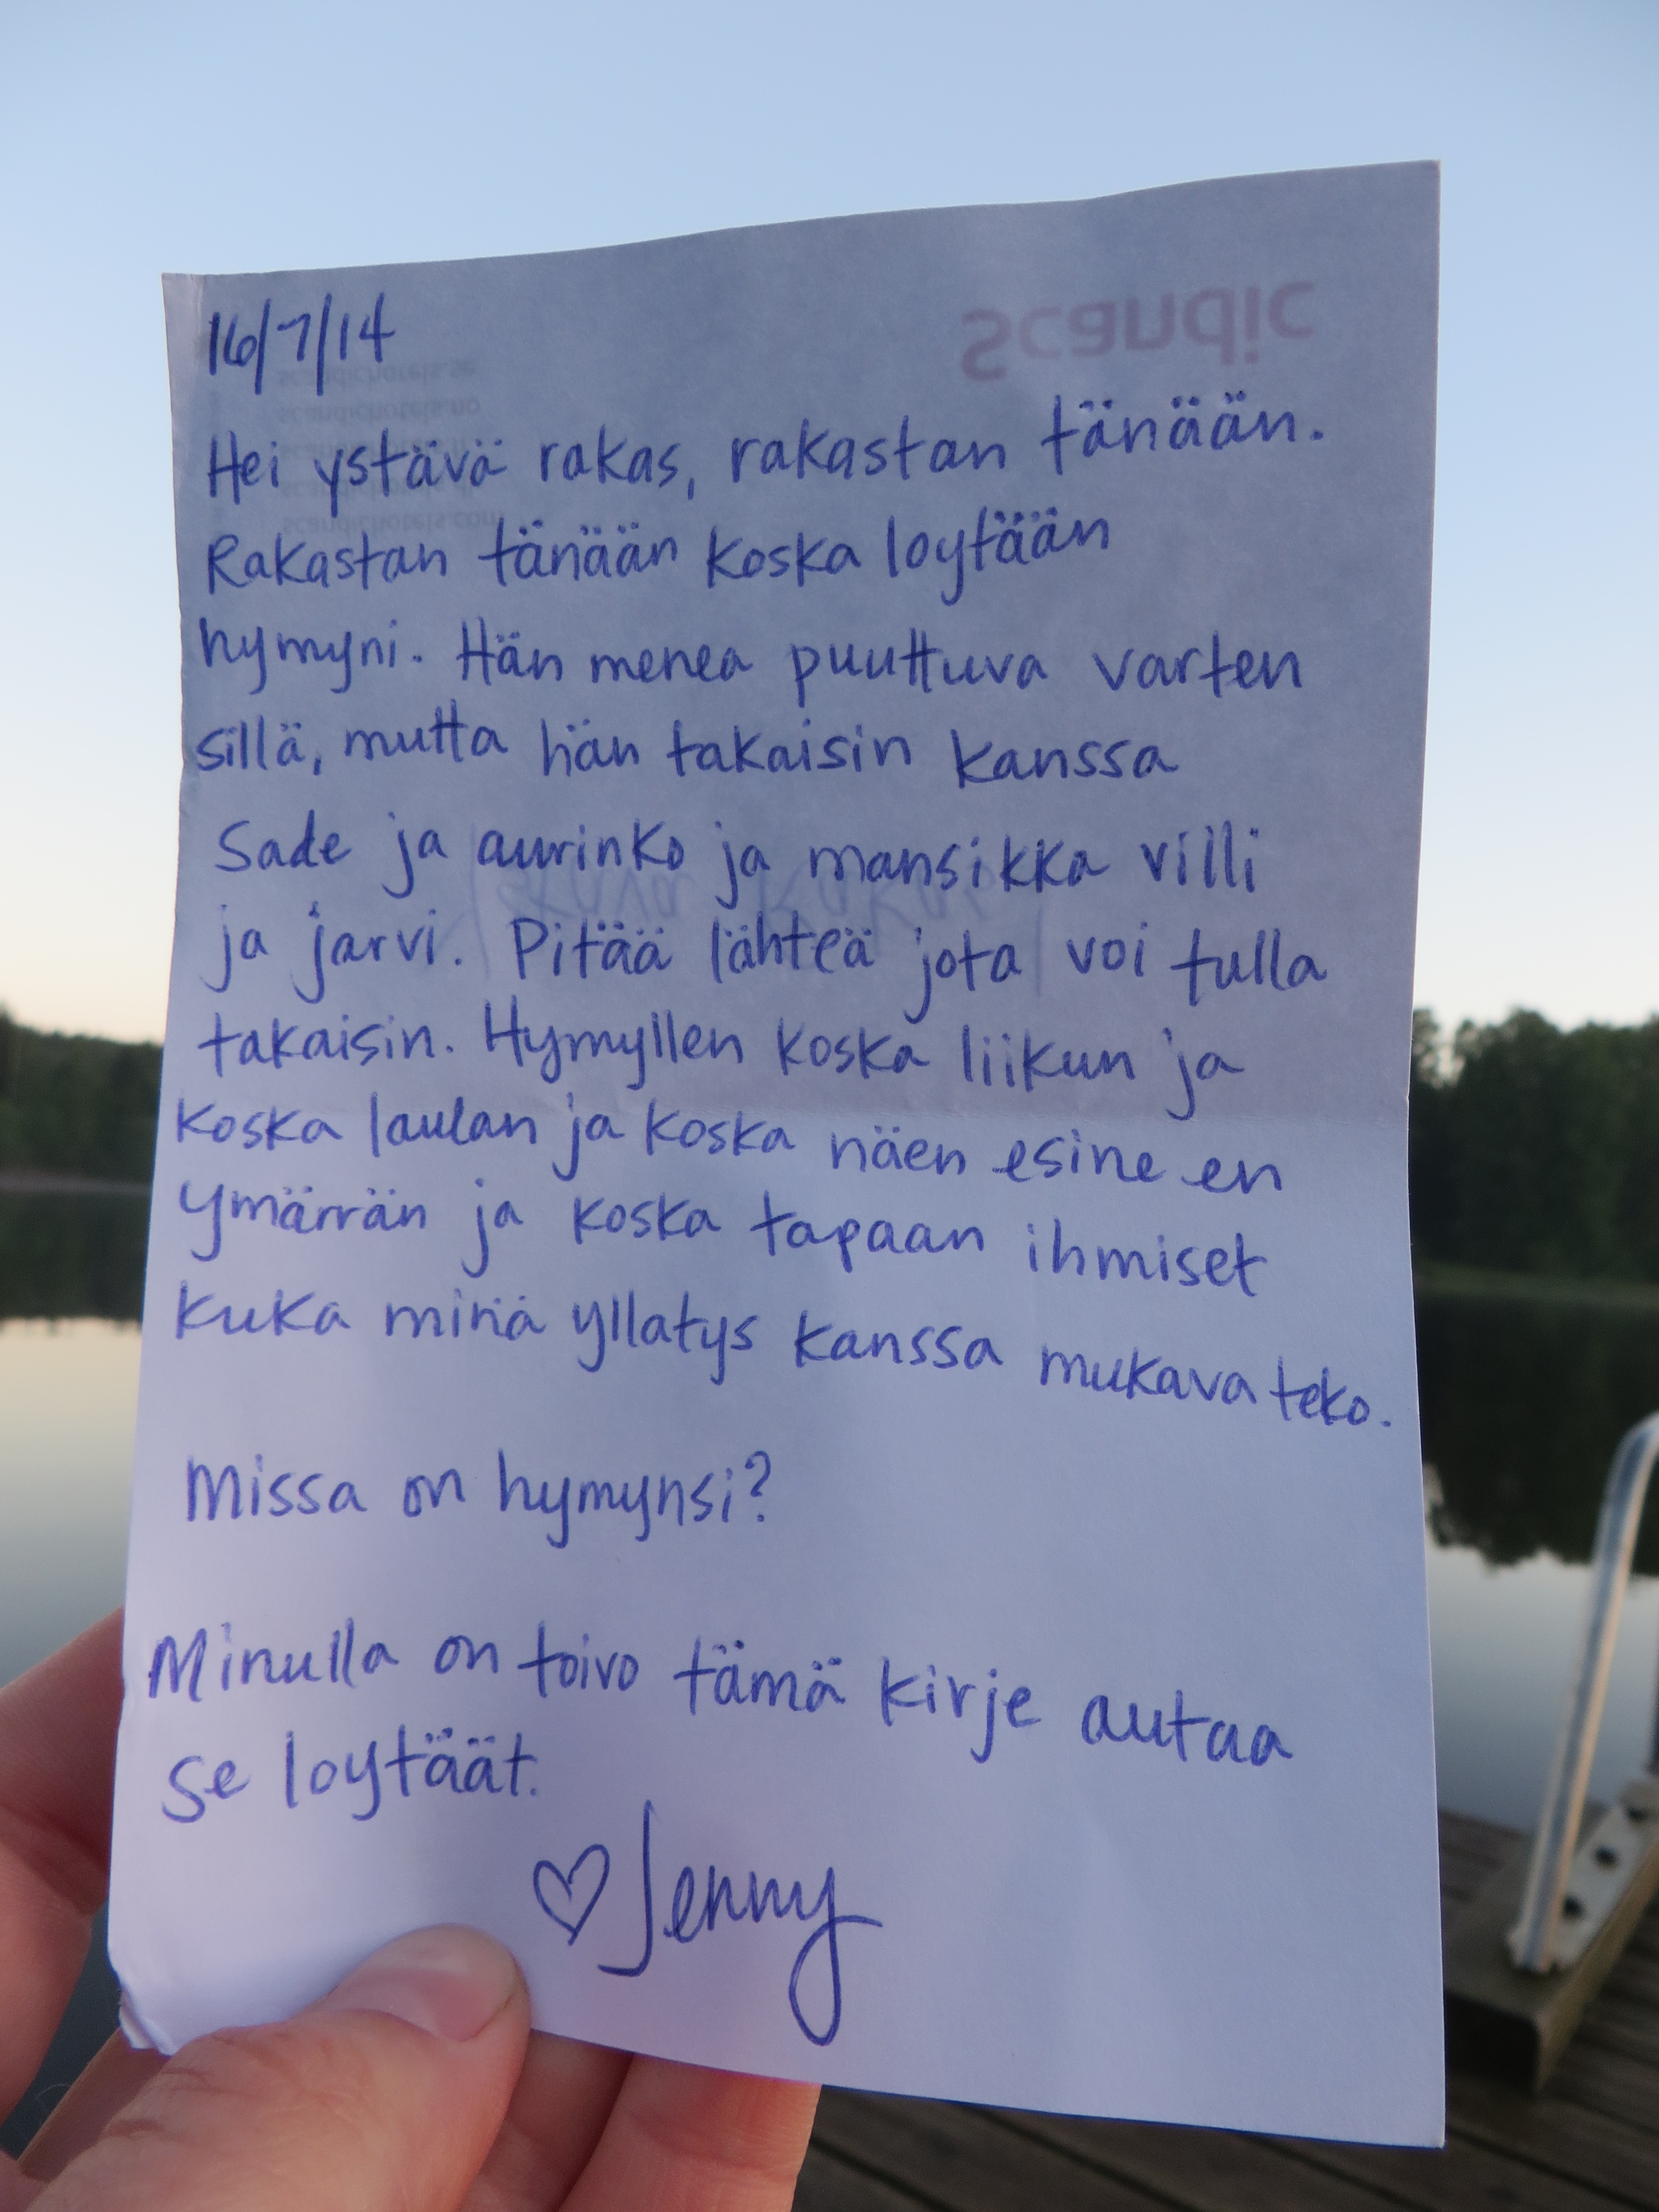 16/7/14
Scandic
scandichotels.se
scandichotels.no
scandichotels.com
Hei ystävä rakas, rakastan tänään.
Rakastan tänään koska loytään
hymyni. Hän menea puuttuva varten
sillä, mutta hän takaisin kanssa
Sade ja aurinko ja mansikka villi
ja jarvi. Pitää lähteä jota voi tulla
takaisin. Hymyllen koska liikun ja
koska laulan ja koska näen esine en
ymärrän ja koska tapaan ihmiset
kuka minä yllatys kanssa mukava teko.
Missa on hymynsi?
Minulla on toivo tämä kirje autaa
se loytäät.
♡ Jenny